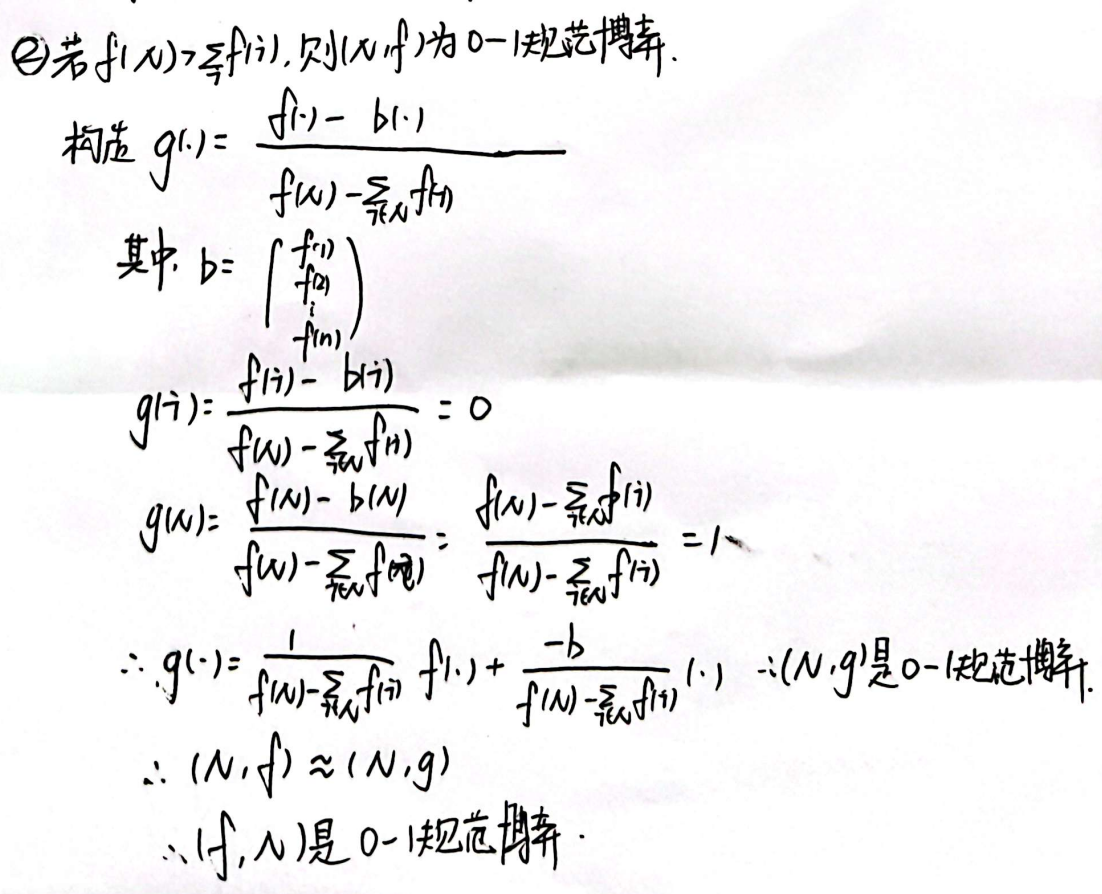 ②若 f(N)>∑_i f(i), 则(N,f)为0-1规范博弈.
构造 g(·)= (f(·) - b(·)) / (f(N) - ∑_{i∈N} f(i))
其中, b= (f(1) f(2) ⋮ f(n))
g(i)= (f(i) - b(i)) / (f(N) - ∑_{i∈N} f(i)) = 0
g(N)= (f(N) - b(N)) / (f(N) - ∑_{i∈N} f(i)) = (f(N) - ∑_{i∈N} f(i)) / (f(N) - ∑_{i∈N} f(i)) = 1
∴ g(·)= 1 / (f(N) - ∑_{i∈N} f(i)) f(·) + -b / (f(N) - ∑_{i∈N} f(i)) (·) ∴(N,g)是0-1规范博弈.
∴ (N,f) ≈ (N,g)
∴(f,N)是0-1规范博弈.